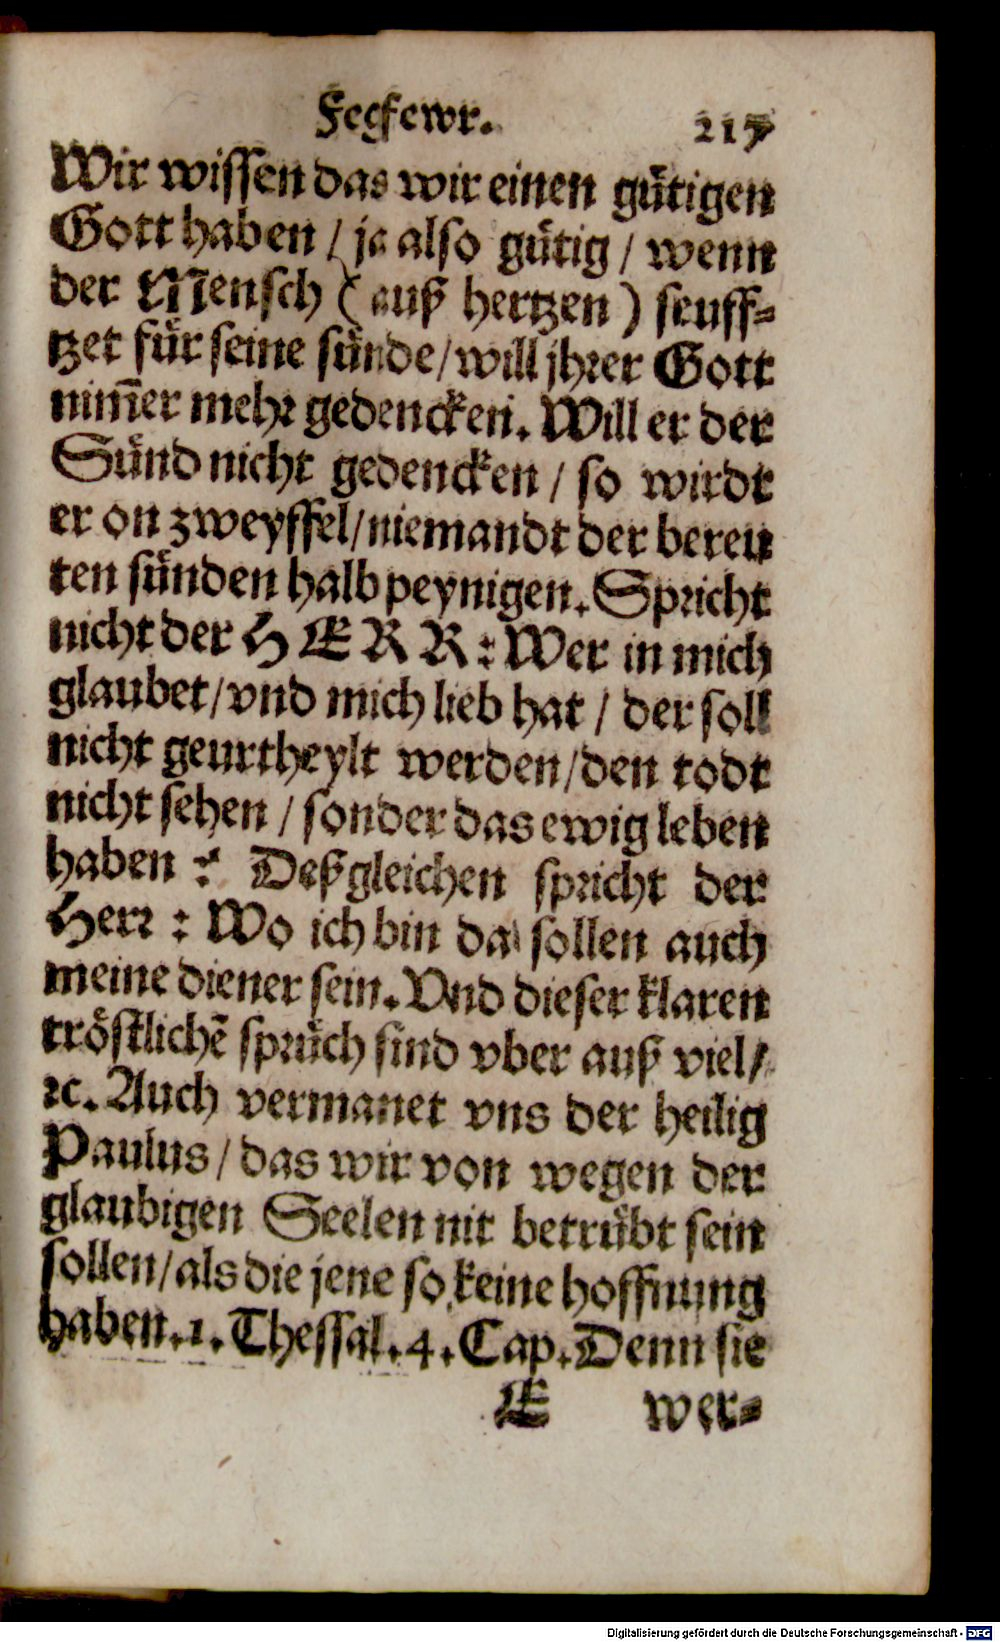 Fegfewr. 217
Wir wissen das wir einen gütigen
Gott haben / ja also gütig / wenn
der Mensch (auß hertzen) seuff⸗
tzet für seine sünde/will jhrer Gott
nim̃er mehr gedencken. Will er der
Sünd nicht gedencken / so wirdt
er on zweyffel/niemandt der bereu
ten sünden halb peynigen. Spricht
nicht der HERR: Wer in mich
glaubet/vnd mich lieb hat / der soll
nicht geurtheylt werden/den todt
nicht sehen / sonder das ewig leben
haben : Deßgleichen spricht der
Herr : Wo ich bin da sollen auch
meine diener sein. Vnd dieser klaren
tröstlichẽ sprüch sind vber auß viel/
ꝛc. Auch vermanet vns der heilig
Paulus / das wir von wegen der
glaubigen Seelen nit betrübt sein
sollen/als die jene so keine hoffnung
haben.1. Thessal.4. Cap. Denn sie
E wer⸗
Digitalisierung gefördert durch die Deutsche Forschungsgemeinschaft - DFG